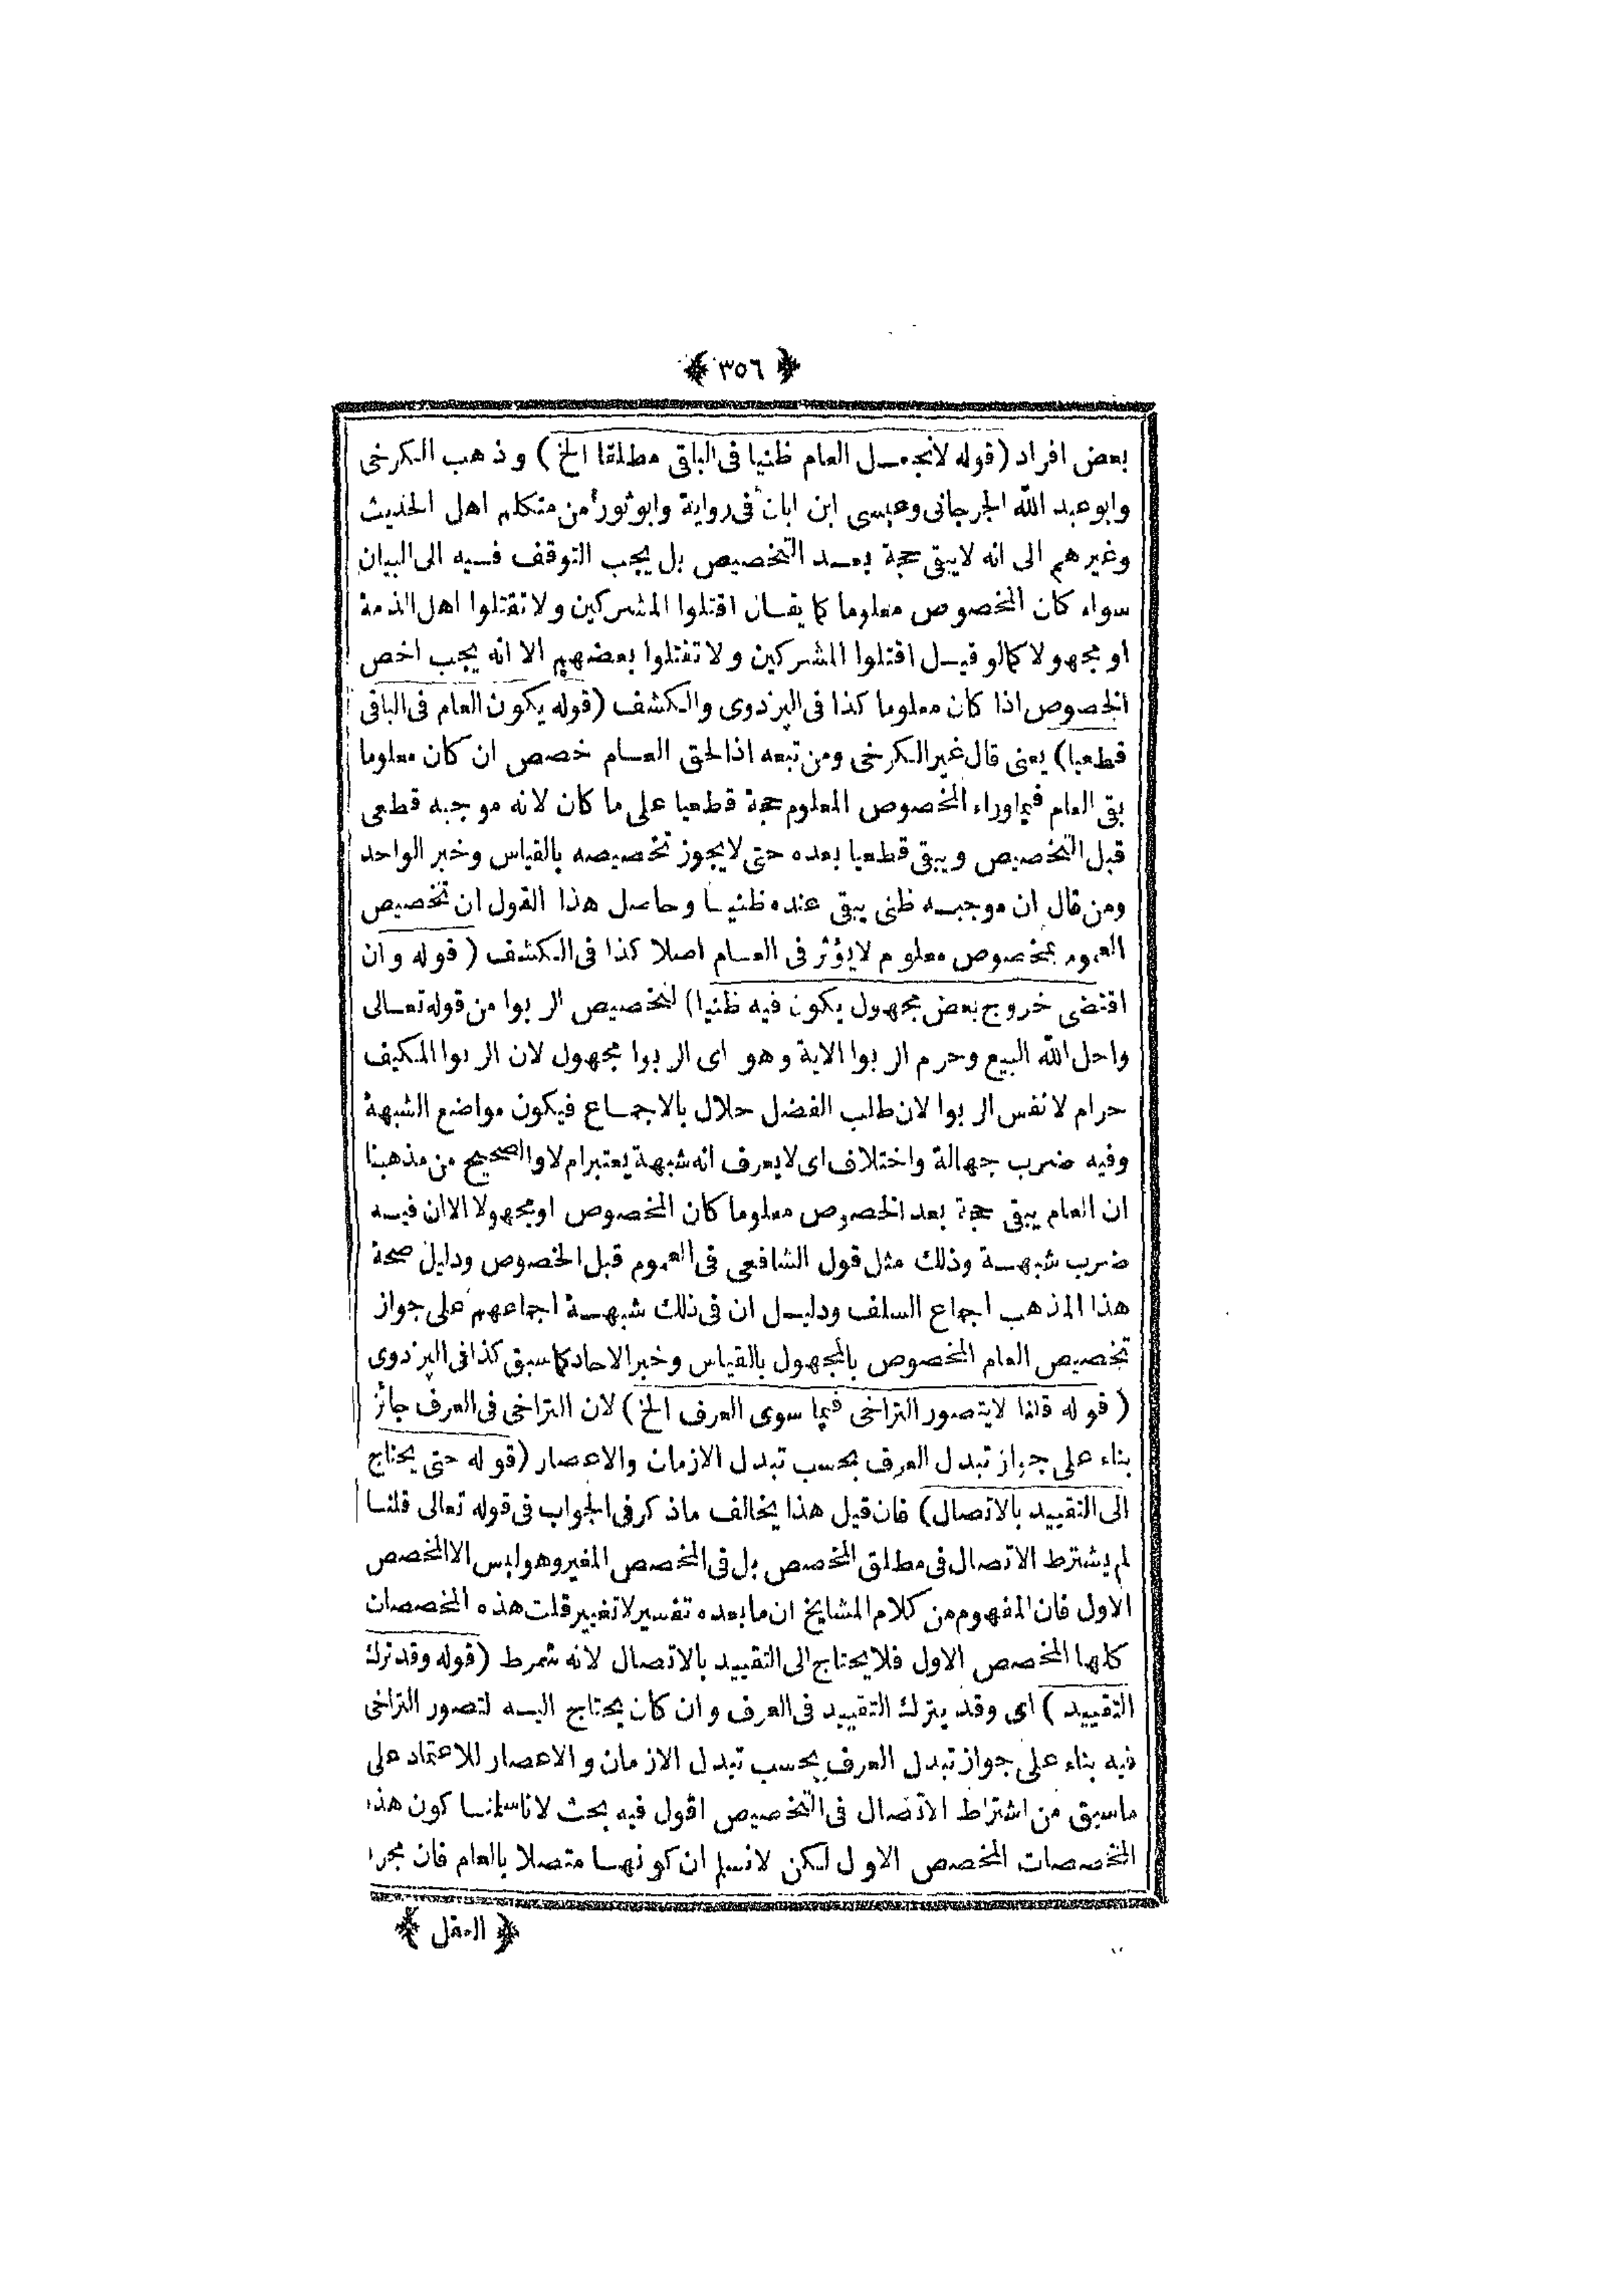 ﴿ ٣٥٦ ﴾
بعض افراد (قوله لانجعل العام ظنيا فى الباقى مطلقا الخ) وذهب الكرخى
وابو عبد الله الجرجانى وعيسى ابن ابان فى رواية وابو ثور من متكلم اهل الحديث
وغيرهم الى انه لايبقى حجة بعد التخصيص بل يجب التوقف فيه الى البيان
سواء كان المخصوص معلوما كما يقال اقتلوا المشركين ولاتقتلوا اهل الذمة
او مجهولا كمالو قيل اقتلوا المشركين ولاتقتلوا بعضهم الا انه يجب اخص
الخصوص اذا كان معلوما كذا فى البزدوى والكشف (قوله يكون العام فى الباقى
قطعيا) يعنى قال غير الكرخى ومن تبعه اذا لحق العام خصص ان كان معلوما
بقى العام فيماوراء المخصوص المعلوم حجة قطعيا على ما كان لانه موجبه قطعى
قبل التخصيص ويبقى قطعيا بعده حتى لايجوز تخصيصه بالقياس وخبر الواحد
ومن قال ان موجبه ظنى يبقى عنده ظنيا وحاصل هذا القول ان تخصيص
العموم بمخصوص معلوم لايؤثر فى العام اصلا كذا فى الكشف (قوله وان
اقتضى خروج بعض مجهول يكون فيه ظنيا) لتخصيص الربوا من قوله تعالى
واحل الله البيع وحرم الربوا الاية وهو اى الربوا مجهول لان الربوا المكيف
حرام لانفس الربوا لان طلب الفضل حلال بالاجماع فيكون مواضع الشبهة
وفيه ضرب جهالة واختلاف اى لايعرف انه شبهة يعتبر ام لا والصحيح من مذهبنا
ان العام يبقى حجة بعد الخصوص معلوما كان المخصوص اومجهولا الاان فيه
ضرب شبهة وذلك مثل قول الشافعى فى العموم قبل الخصوص ودليل صحة
هذا المذهب اجماع السلف ودليل ان فى ذلك شبهة اجماعهم على جواز
تخصيص العام المخصوص بالمجهول بالقياس وخبر الاحاد كما سبق كذا فى البزدوى
(قوله قلنا لايتصور التراخى فيما سوى العرف الخ) لان التراخى فى العرف جائز
بناء على جواز تبدل العرف بحسب تبدل الازمان والاعصار (قوله حتى يحتاج
الى التقييد بالاتصال) فان قيل هذا يخالف ماذكر فى الجواب فى قوله تعالى قلنا
لم يشترط الاتصال فى مطلق المخصص بل فى المخصص المغير وهو ليس الاالمخصص
الاول فان المفهوم من كلام المشايخ ان مابعده تفسير لاتغيير قلت هذه المخصصات
كلها المخصص الاول فلايحتاج الى التقييد بالاتصال لانه شرط (قوله وقد ترك
التقييد) اى وقد يترك التقييد فى العرف وان كان يحتاج اليه لتصور التراخى
فيه بناء على جواز تبدل العرف بحسب تبدل الازمان والاعصار للاعتماد على
ماسبق من اشتراط الاتصال فى التخصيص اقول فيه بحث لاناسلمنا كون هذه
المخصصات المخصص الاول لكن لانسلم ان كونها متصلا بالعام فان مجرد
﴿ العقل ﴾